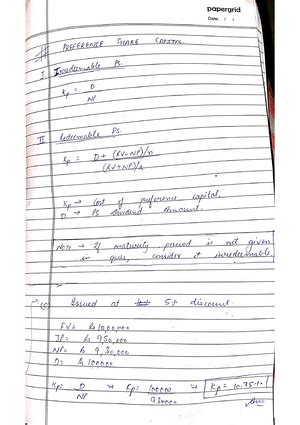 papergrid
Date: / /
# PREFERENCE SHARE CAPITAL
I Irredeemable Ps.
Kp = D
NP
II Redeemable Ps.
Kp = D + (RV-NP)/n
(RV+NP)/2
Kp → Cost of preference capital.
D → Ps Dividend Amount.
Note → If maturity period is not given
in ques, consider it irredeemable
(c) Issued at 5% discount.
FV = ₨ 1000,000
IP = ₨ 950,000
NP = ₨ 9,30,000
D = ₨ 100000
Kp = D ⇒ Kp = 100000 ⇒ Kp = 10.75%
NP 930000 Ans